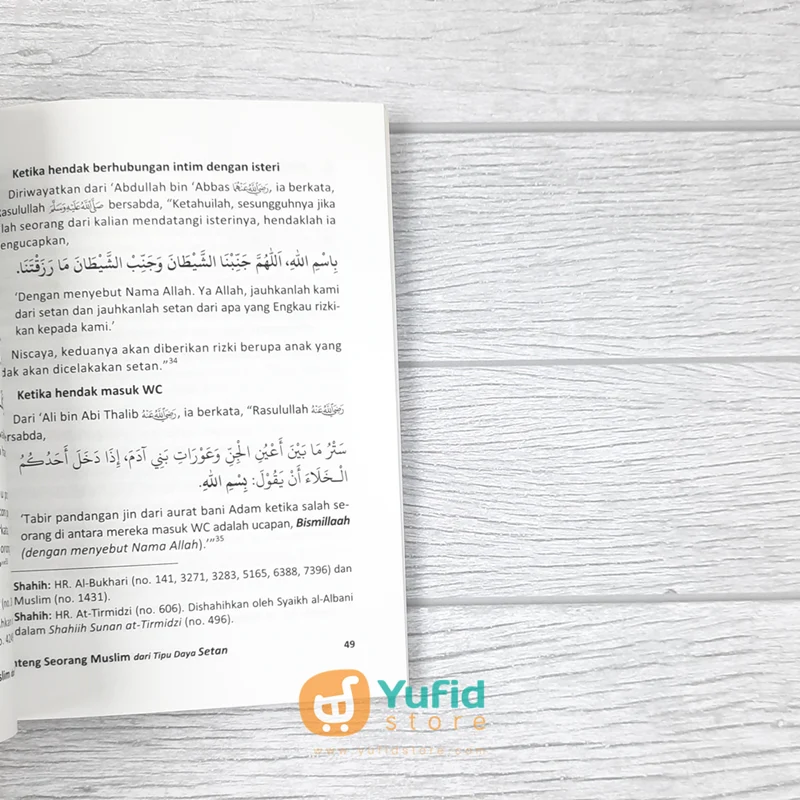 Ketika hendak berhubungan intim dengan isteri
Diriwayatkan dari ‘Abdullah bin ‘Abbas رَضِيَ اللَّهُ عَنْهُمَا, ia berkata,
Rasulullah صَلَّى اللَّهُ عَلَيْهِ وَسَلَّمَ bersabda, “Ketahuilah, sesungguhnya jika
lah seorang dari kalian mendatangi isterinya, hendaklah ia
engucapkan,
بِاسْمِ اللهِ، اَللّٰهُمَّ جَنِّبْنَا الشَّيْطَانَ وَجَنِّبْ الشَّيْطَانَ مَا رَزَقْتَنَا.
‘Dengan menyebut Nama Allah. Ya Allah, jauhkanlah kami
dari setan dan jauhkanlah setan dari apa yang Engkau rizki-
kan kepada kami.’
Niscaya, keduanya akan diberikan rizki berupa anak yang
dak akan dicelakakan setan.”34
Ketika hendak masuk WC
Dari ‘Ali bin Abi Thalib رَضِيَ اللَّهُ عَنْهُ, ia berkata, “Rasulullah رَضِيَ اللَّهُ عَنْهُ
ersabda,
سَتْرُ مَا بَيْنَ أَعْيُنِ الْجِنِّ وَعَوْرَاتِ بَنِي آدَمَ، إِذَا دَخَلَ أَحَدُكُمُ
الْخَلَاءَ أَنْ يَقُوْلَ: بِسْمِ اللهِ.
‘Tabir pandangan jin dari aurat bani Adam ketika salah se-
orang di antara mereka masuk WC adalah ucapan, Bismillaah
(dengan menyebut Nama Allah).’”35
Shahih: HR. Al-Bukhari (no. 141, 3271, 3283, 5165, 6388, 7396) dan
Muslim (no. 1431).
Shahih: HR. At-Tirmidzi (no. 606). Dishahihkan oleh Syaikh al-Albani
dalam Shahiih Sunan at-Tirmidzi (no. 496).
49
nteng Seorang Muslim dari Tipu Daya Setan
Yufid
store
www.yufidstore.com